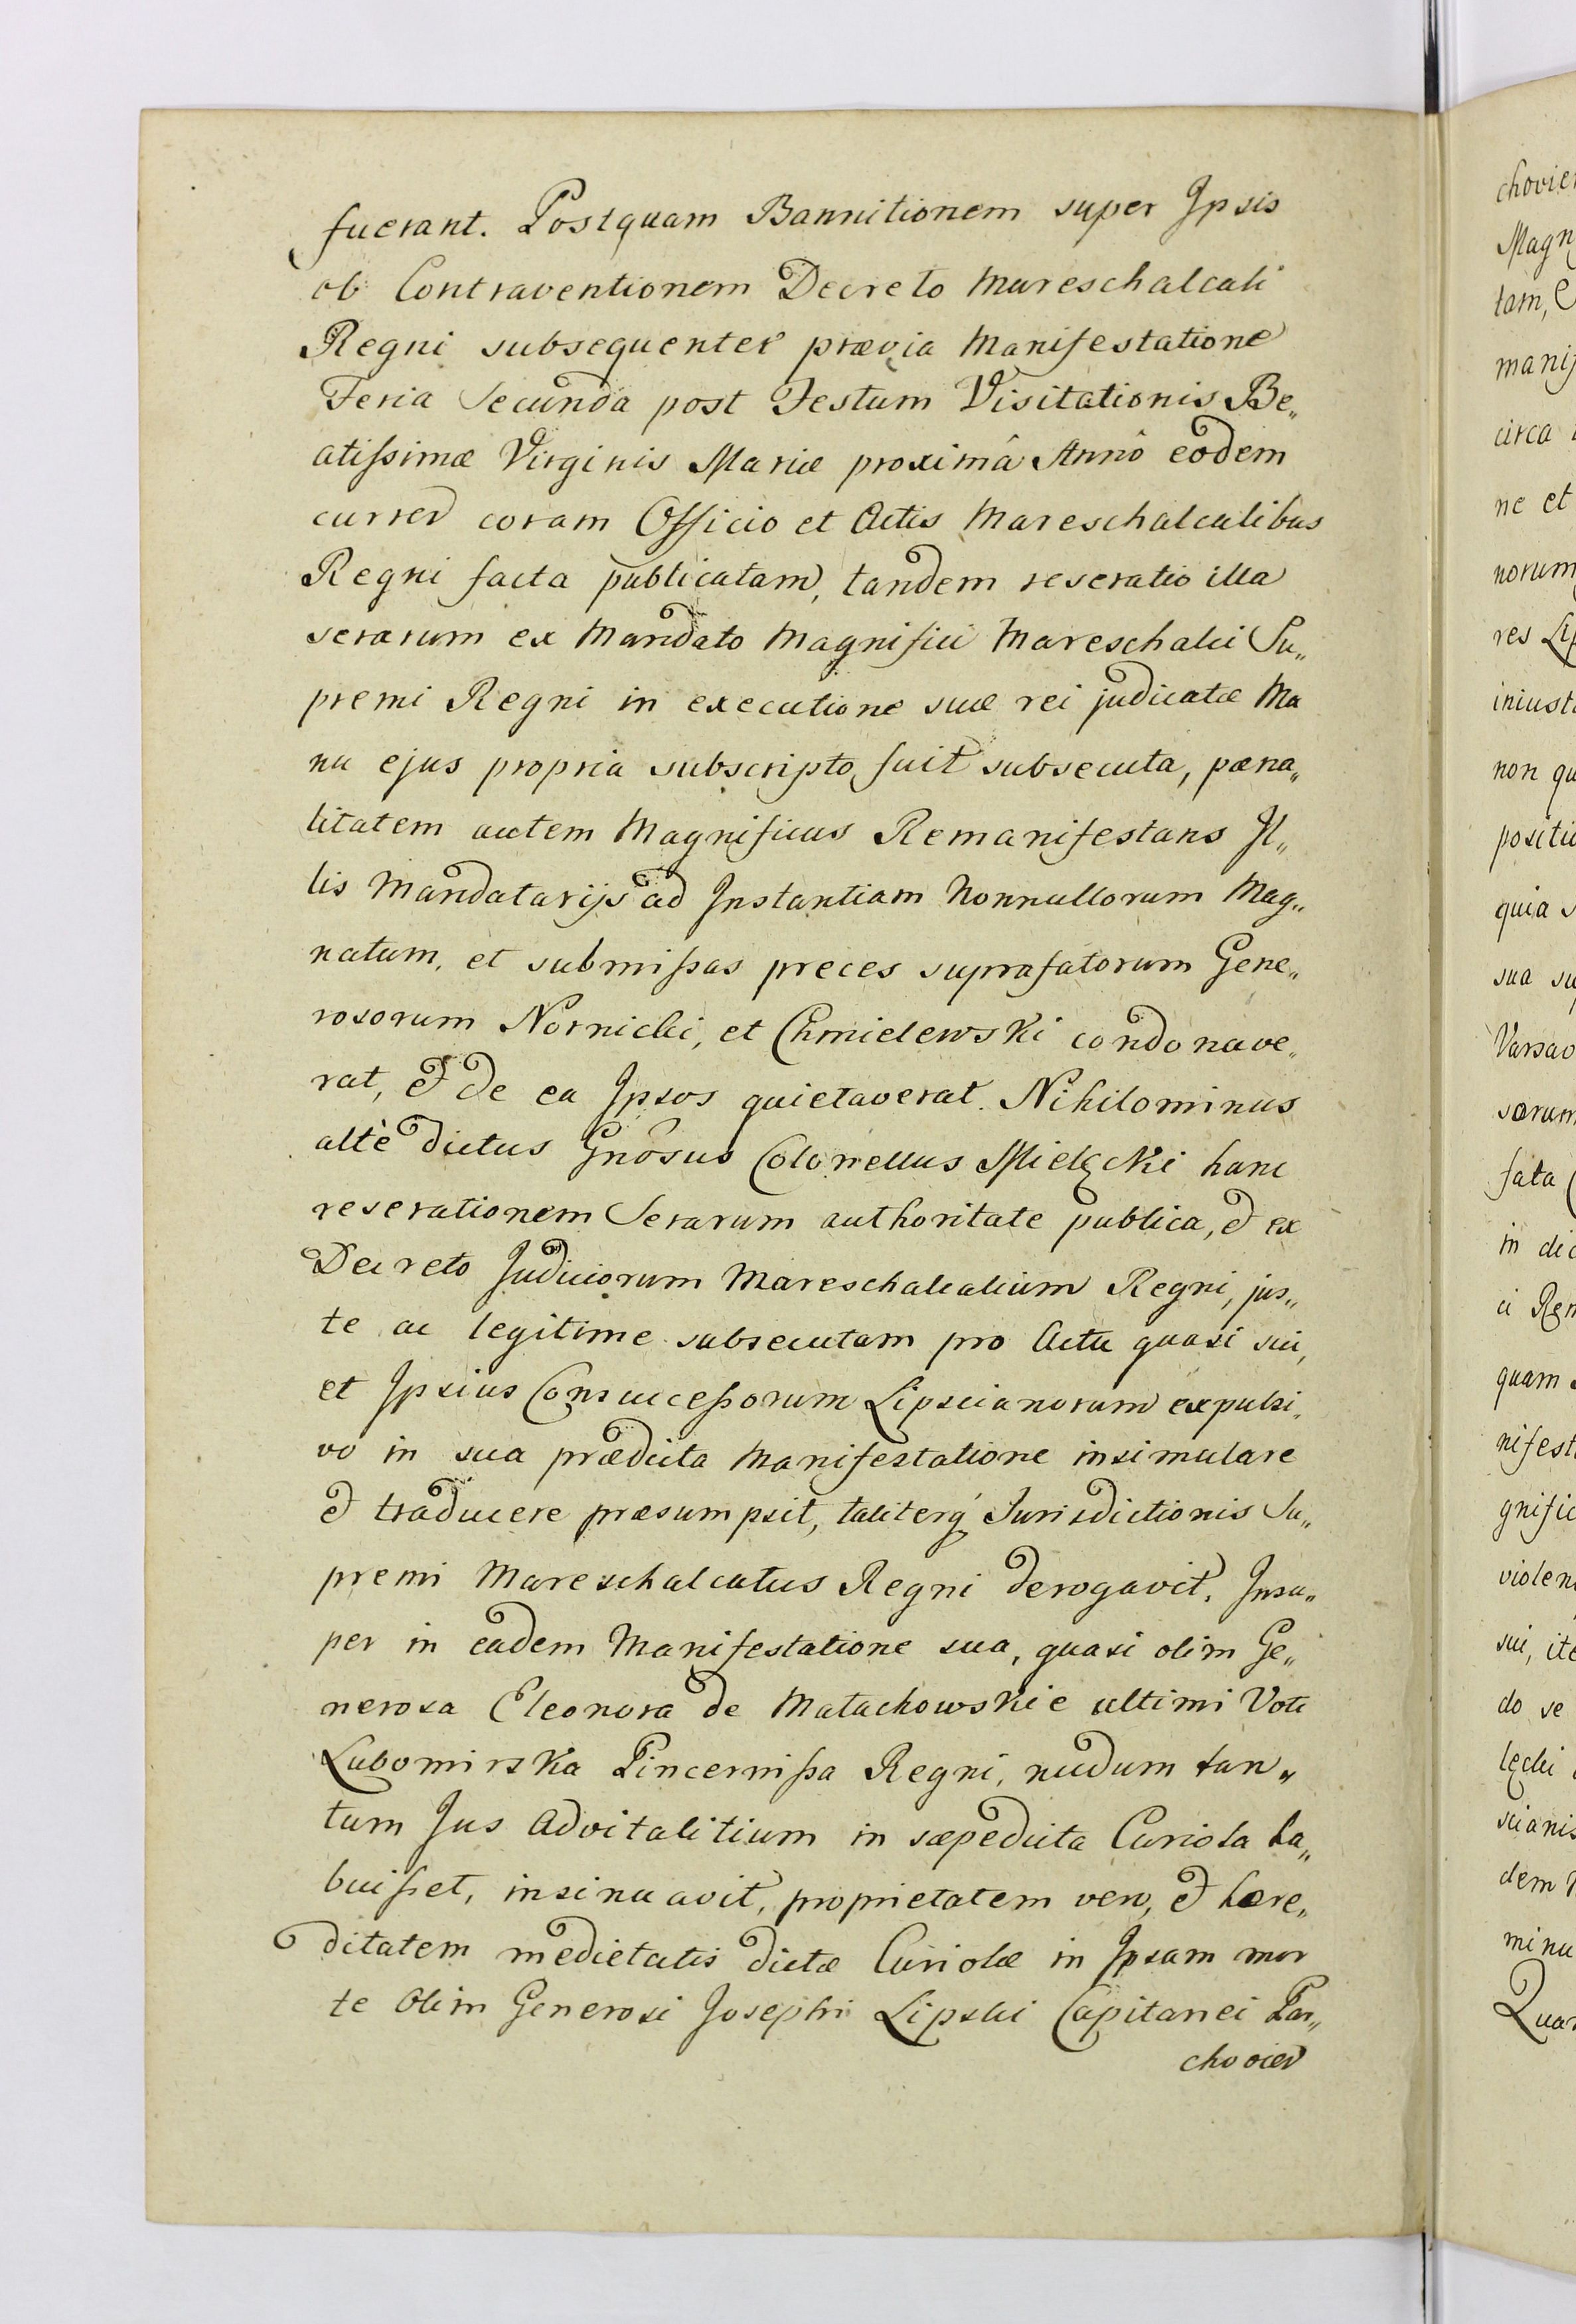 fuerant. Postquam Bannitionem super Ipsis
ob Contraventionem Decreto Mareschalcali
Regni subsequenter prævia Manifestatione
Feria Secunda post Festum Visitationis Be„
atißimæ Virginis Mariæ proximâ Annô eodem
curren coram Officio et Actis Mareschalcalibus
Regni facta publicatam, tandem reseratio illa
serarum ex Mandato Magnifici Mareschalci Su„
premi Regni in executione suæ rei judicatæ Ma
nu ejus propria subscripto fuit subsecuta, pæna„
litatem autem Magnificus Remanifestans Il„
lis Mandatarijs ad Instantiam Nonnullorum Mag„
natum, et submißas preces suprafatorum Gene„
rosorum Nornicki, et Chmielewski condonave„
rat, et de ea Ipsos quietaverat. Nihilominus
altè dictus Gnôsus Colonellus Mielęcki hanc
reserationem Serarum authoritate publica, et ex
Decreto Judiciorum Mareschalcalium Regni, jus„
te ac legitime subsecutam pro Actu quasi sui,
et Ipsius Consuccessorum Lipscianorum expulsi„
vo in sua prædicta Manifestatione insimulare
et traducere præsumpsit, taliterq́ Jurisdictionis Su„
premi Mareschalcatus Regni derogavit. Insu„
per in eadem Manifestatione sua, quasi olim Ge„
nerosa Eleonora de Matachowskie ultimi Voti
Lubomirska Pincernißa Regni, nudum tan„
tum Jus Advitalitium in sæpedicta Curiola ha„
buißet, insinuavit, proprietatem vero, et hære„
ditatem medietatis dictæ Curiolæ in Ipsam mor
te Olim Generosi Josephi Lipski Capitanei Par„
chovien
chovien
Magn
tam,
manif
circa
ne et
norum
res Lip
iniust
non qu
positi
quia s
sua su
Varsav
sorum
fata
in dic
ci Rem
quam
nifest
gnific
violen
sui, ite
do se
lęcki
scianis
dem
minu
Quar